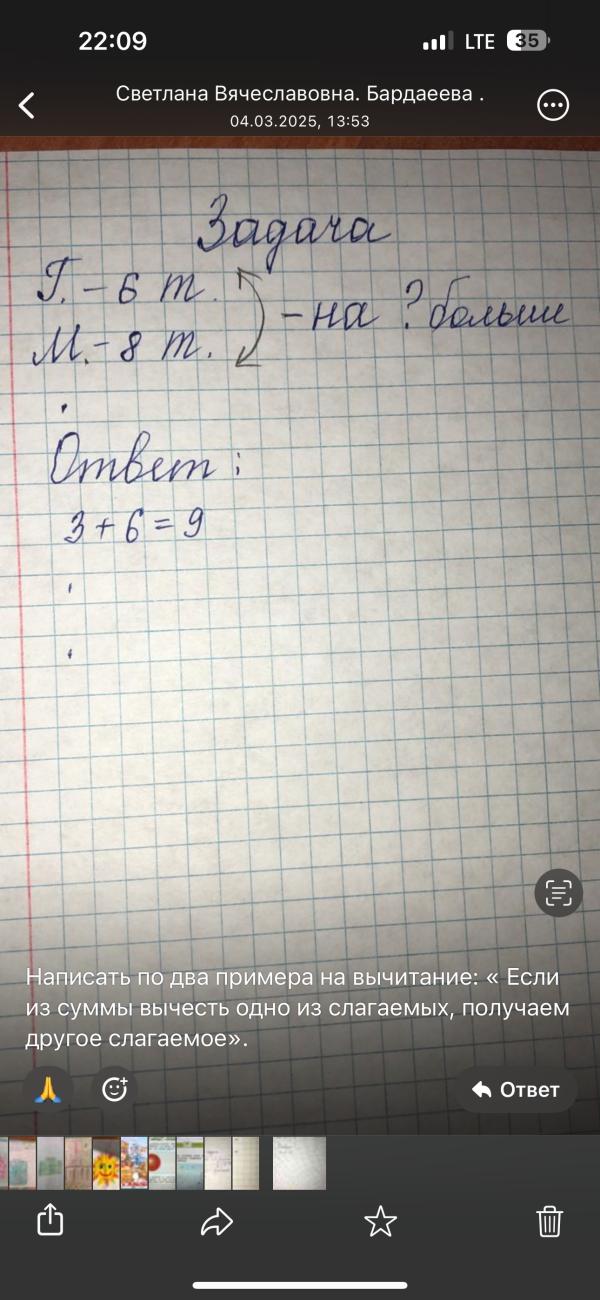 22:09
LTE 35
Светлана Вячеславовна. Бардаеева .
04.03.2025, 13:53
Задача
Г. – 6 т.
– на ? больше
М. – 8 т.
Ответ :
3 + 6 = 9
Написать по два примера на вычитание: « Если
из суммы вычесть одно из слагаемых, получаем
другое слагаемое».
Ответ